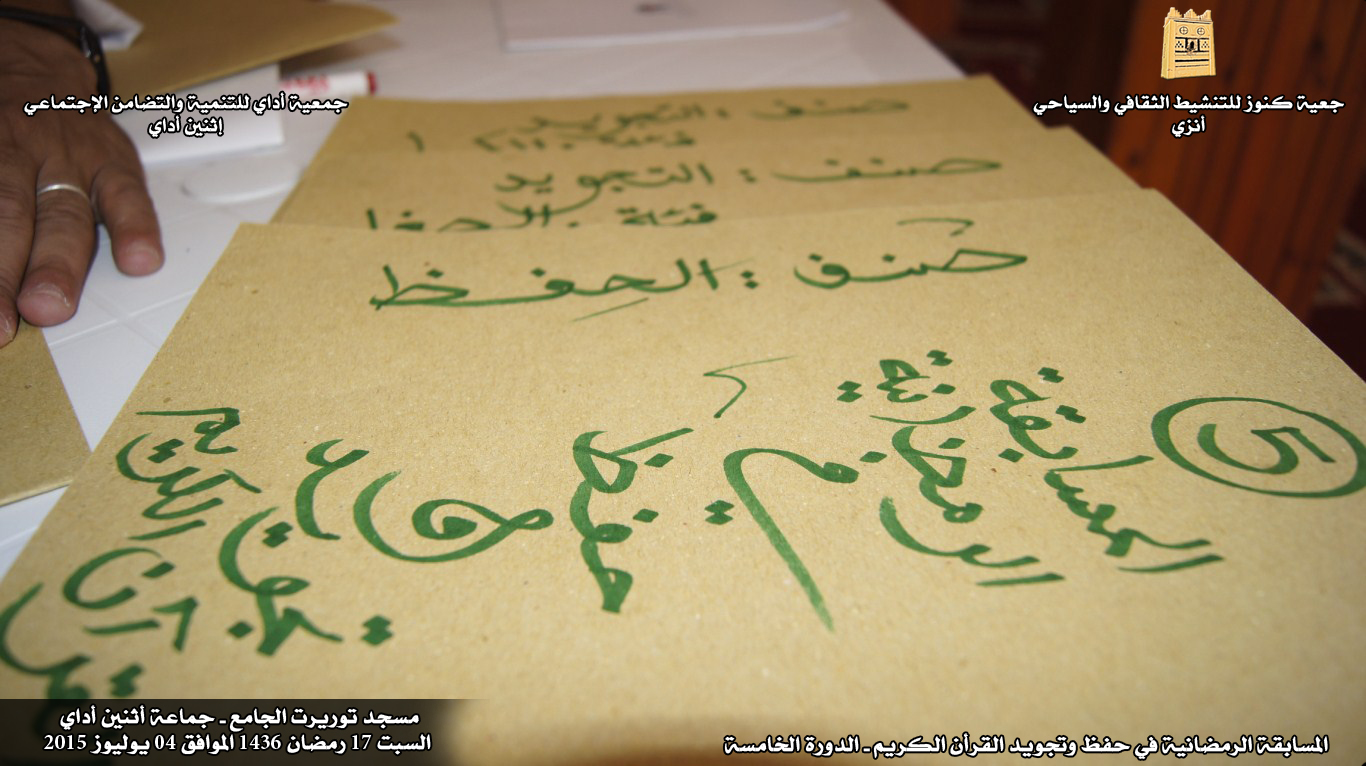 جمعية كنوز للتنشيط الثقافي والسياحي
أنزي
جمعية أداي للتنمية والتضامن الإجتماعي
إثنين أداي
صنف : التجويد
صنف : التجويد
فئة
صنف : الحفظ
5
المسابقة
الرمضانية
في
حفظ
و
تجويد
القرآن
الكريم
مسجد توريرت الجامع ـ جماعة أثنين أداي
السبت 17 رمضان 1436 الموافق 04 يوليوز 2015
المسابقة الرمضانية في حفظ وتجويد القرأن الكريم ـ الدورة الخامسة